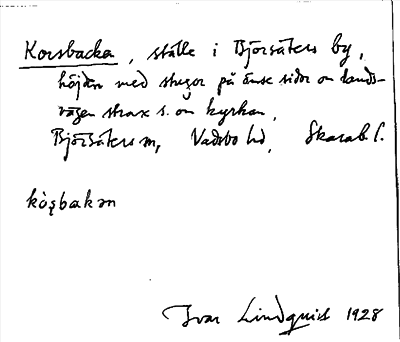 Korsbacka, ställe i Björsäters by,
höjden med stugor på ömse sidor om lands-
vägen strax s. om kyrkan,
Björsäters sn, Vadsbo hd, Skarab. l.
kòʂbakən
Ivar Lindquist 1928